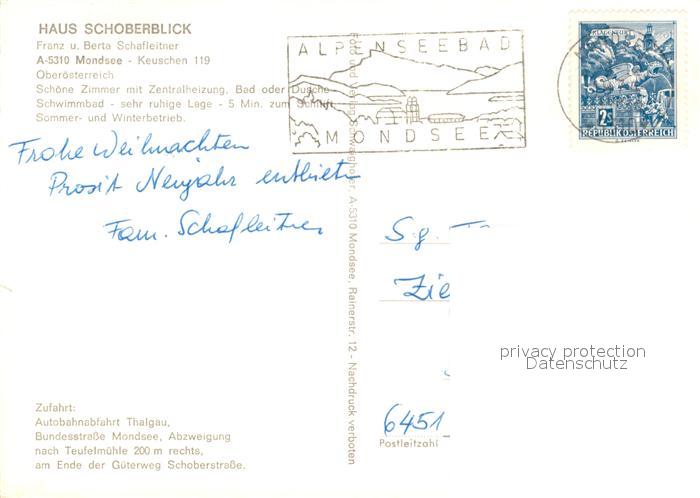 HAUS SCHOBERBLICK
Franz u. Berta Schafleitner
A-5310 Mondsee - Keuschen 119
Oberösterreich
Schöne Zimmer mit Zentralheizung, Bad oder Dusche
Schwimmbad - sehr ruhige Lage - 5 Min. zum Schilift
Sommer- und Winterbetrieb.
ALPENSEEBAD
MONDSEE
KLAGENFURT
2S
REPUBLIK ÖSTERREICH
Frohe Weihnachten
Prosit Neujahr entbietet
Fam. Schafleitner
A-5310 Mondsee, Rainerstr. 12 - Nachdruck verboten
Sg.
Zie
6451
Postleitzahl
privacy protection
Datenschutz
Zufahrt:
Autobahnabfahrt Thalgau,
Bundesstraße Mondsee, Abzweigung
nach Teufelmühle 200 m rechts,
am Ende der Güterweg Schoberstraße.